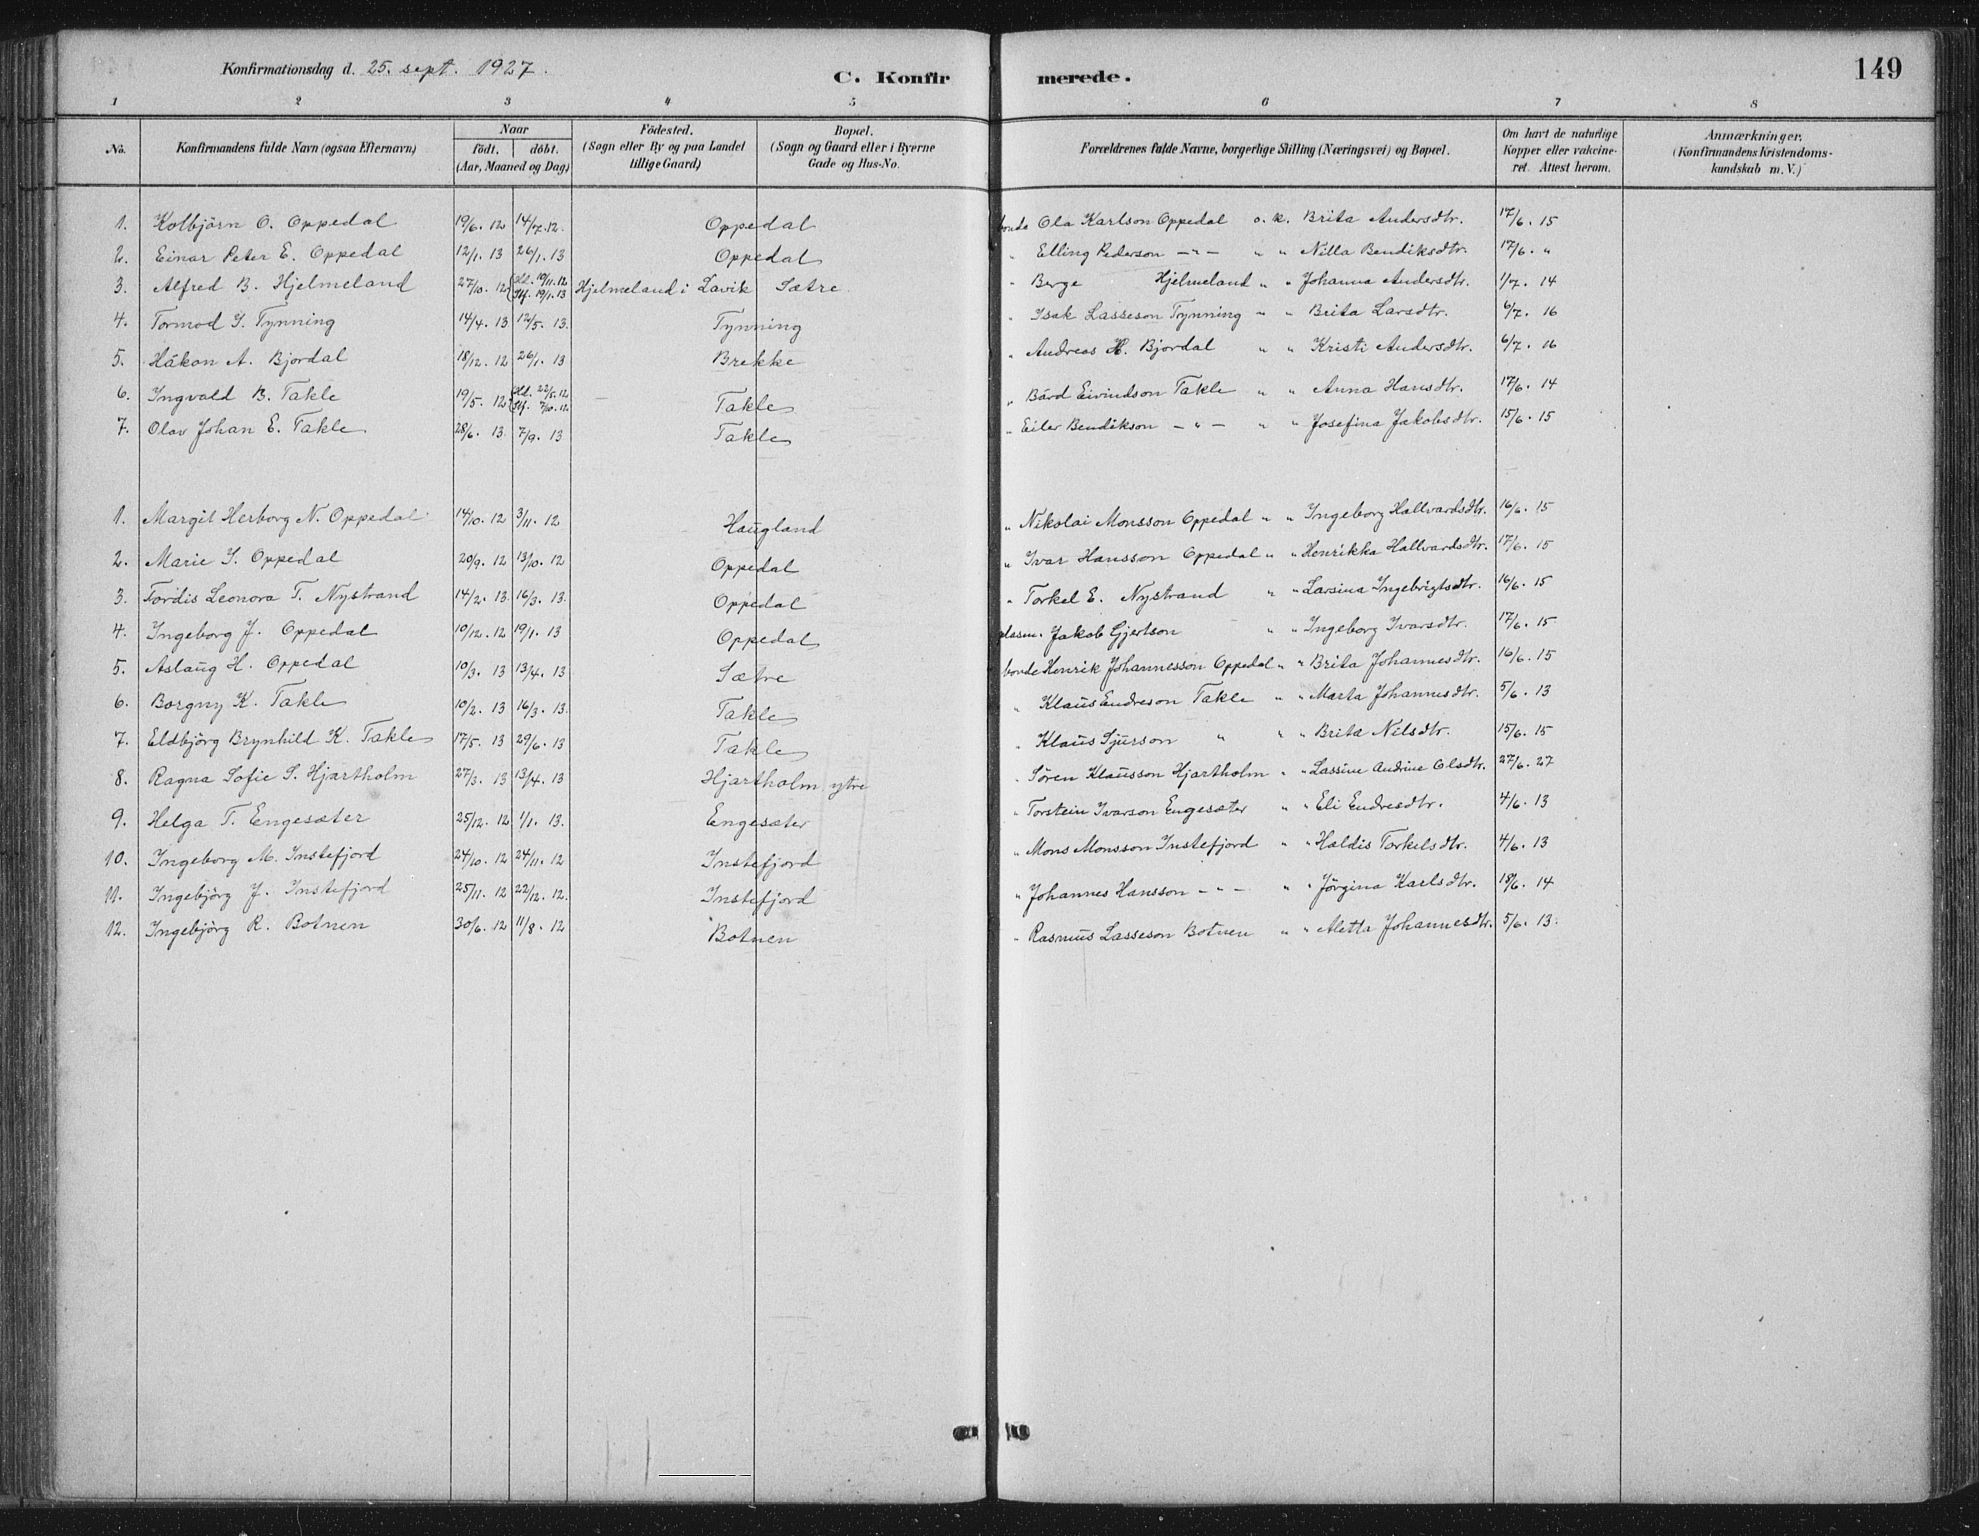 Konfirmationsdag d. 25. sept. 1927.
C. Konfirmerede.
149
1 2 3 4 5 6 7 8
No.
Konfirmandens fulde Navn (ogsaa Efternavn)
Naar
födt. | döbt.
(Aar, Maaned og Dag)
Födested.
(Sogn eller By og paa Landet
tillige Gaard)
Bopæl.
(Sogn og Gaard eller i Byerne
Gade og Hus-No.
Forældrenes fulde Navne, borgerlige Stilling (Næringsvei) og Bopæl.
Om havt de naturlige
Kopper eller vakcine-
ret. Attest herom.
Anmærkninger.
(Konfirmandens Kristendoms-
kundskab m. V.)
1. Kolbjörn O. Oppedal 19/6. 12 14/7. 12. Oppedal bonde Ola Karlson Oppedal o. k. Brita Andersdtr. 17/6. 15
2. Einar Peter E. Oppedal 12/1. 13 26/1. 13 Oppedal " Elling Pederson — " — " " Nilla Bendiksdtr. 17/6. "
3. Alfred B. Hjelmeland 27/10. 12 10/11. 12 19/1. 13 Hjelmeland i Lavik Sætre " Berge Hjelmeland " " Johanna Andersdtr. 1/7. 14
4. Tormod I. Tynning 14/4. 13 12/5. 13. Tynning " Isak Lasseson Tynning " " Brita Larsdtr. 6/7. 16
5. Håkon A. Bjordal 18/12. 12 26/1. 13 Brekke " Andreas H. Bjordal " " Kristi Andersdtr. 6/7. 16
6. Ingvald B. Takle 19/5. 12 22/5. 12 7/10. 12 Takle " Bård Eivindson Takle " " Anna Hansdtr. 17/6. 14
7. Olav Johan E. Takle 28/6. 13 7/9. 13 Takle " Eiler Bendikson — " — " " Josefina Jakobsdtr. 15/6. 15
1. Margit Herborg N. Oppedal 14/10. 12 3/11. 12 Haugland " Nikolai Monsson Oppedal " " Ingeborg Hallvardsdtr. 16/6. 15
2. Marie I. Oppedal 20/9. 12 13/10. 12 Oppedal " Ivar Hansson Oppedal " " Henrikka Hallvardsdtr. 17/6. 15
3. Tordis Leonora T. Nystrand 14/2. 13 16/3. 13. Oppedal " Torkel E. Nystrand " " Larsina Ingebrigtsdtr. 16/6. 15
4. Ingeborg J. Oppedal 10/12. 12 19/1. 13 Oppedal plasm. Jakob Gjertson " " Ingeborg Ivarsdtr. 17/6. 15
5. Aslaug H. Oppedal 10/3. 13 13/4. 13 Sætre bonde Henrik Johannesson Oppedal " " Brita Johannesdtr. 16/6. 15
6. Borgny K. Takle 10/2. 13 16/3. 13. Takle " Klaus Endreson Takle " " Marta Johannesdtr. 5/6. 13
7. Eldbjörg Brynhild K. Takle 17/5. 13 29/6. 13 Takle " Klaus Sjurson " " " Brita Nilsdtr. 15/6. 15
8. Ragna Sofie S. Hjartholm 27/3. 13 13/4. 13 Hjartholm ytre " Sören Klausson Hjartholm " " Lassine Andrine Olsdtr. 27/6. 27
9. Helga T. Engesæter 25/12. 12 1/1. 13. Engesæter " Torstein Ivarson Engesæter " " Eli Endresdtr. 4/6. 13
10. Ingeborg M. Instefjord 24/10. 12 24/11. 12 Instefjord " Mons Monsson Instefjord " " Haldis Torkelsdtr. 4/6. 13
11. Ingebjörg J. Instefjord 25/11. 12 22/12. 12. Instefjord " Johannes Hansson — " — " " Jörgina Karlsdtr. 18/6. 14
12. Ingebjörg R. Botnen 30/6. 12 11/8. 12 Botnen " Rasmus Lasseson Botnen " " Aletta Johannesdtr. 5/6. 13.